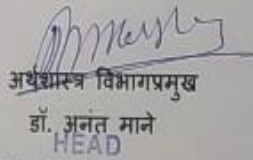 अर्थशास्त्र विभागप्रमुख
डॉ. अनंत माने
HEAD